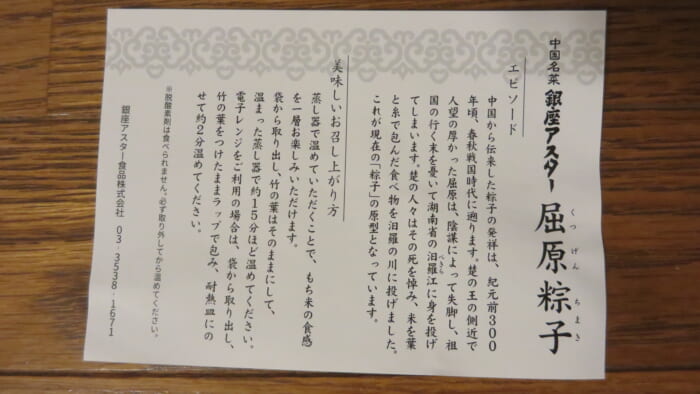 中国名菜 銀座アスター 屈原粽子
くつげんちまき
エピソード
中国から伝来した粽子の発祥は、紀元前300
年頃、春秋戦国時代に遡ります。楚の王の側近で
人望の厚かった屈原は、陰謀によって失脚し、祖
国の行く末を憂いて湖南省の汨羅江に身を投げ
べきら
てしまいます。楚の人々はその死を悼み、米を葉
と糸で包んだ食べ物を汨羅の川に投げました。
これが現在の「粽子」の原型となっています。
美味しいお召し上がり方
蒸し器で温めていただくことで、もち米の食感
を一層お楽しみいただけます。
袋から取り出し、竹の葉はそのままにして、
温まった蒸し器で約15分ほど温めてください。
電子レンジをご利用の場合は、袋から取り出し、
竹の葉をつけたままラップで包み、耐熱皿にの
せて約2分温めてください。
※脱酸素剤は食べられません。必ず取り外してから温めてください。
銀座アスター食品株式会社 03-3538-1671